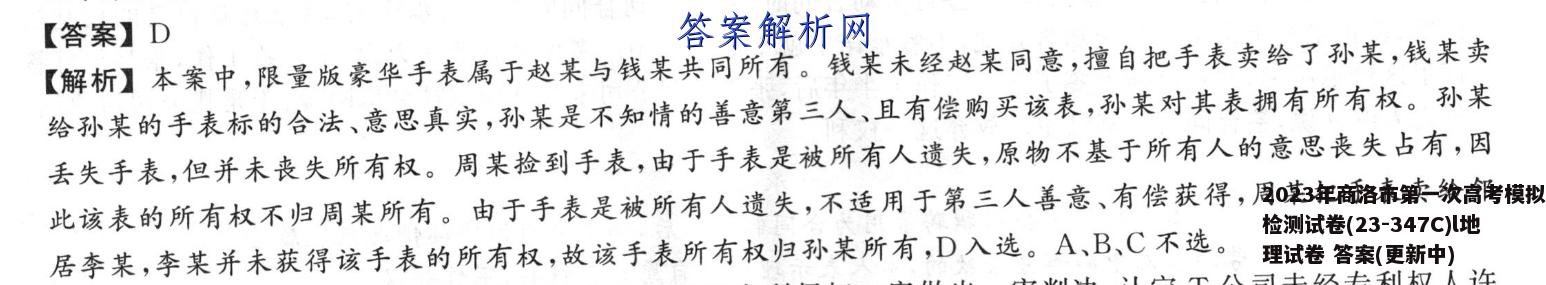 【答案】D
答案解析网
【解析】本案中,限量版豪华手表属于赵某与钱某共同所有。钱某未经赵某同意,擅自把手表卖给了孙某,钱某卖
给孙某的手表标的合法、意思真实,孙某是不知情的善意第三人、且有偿购买该表,孙某对其表拥有所有权。孙某
丢失手表,但并未丧失所有权。周某捡到手表,由于手表是被所有人遗失,原物不基于所有人的意思丧失占有,因
此该表的所有权不归周某所有。由于手表是被所有人遗失,不适用于第三人善意、有偿获得,周
居李某,李某并未获得该手表的所有权,故该手表所有权归孙某所有,D入选。A、B、C不选。
2023年商洛市第一次高考模拟
检测试卷(23-347C)l地
理试卷 答案(更新中)